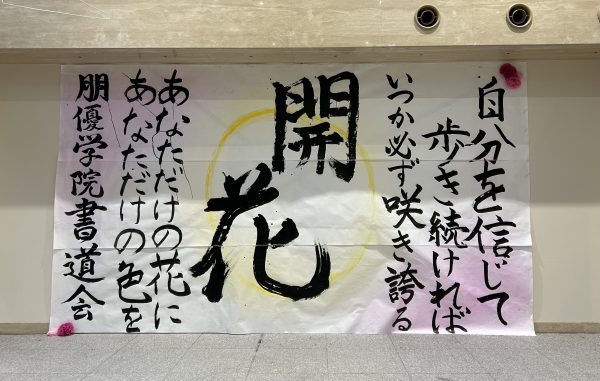 自分を信じて
歩き続ければ
いつか必ず咲き誇る
開花
あなただけの花に
あなただけの色を
朋優学院書道会